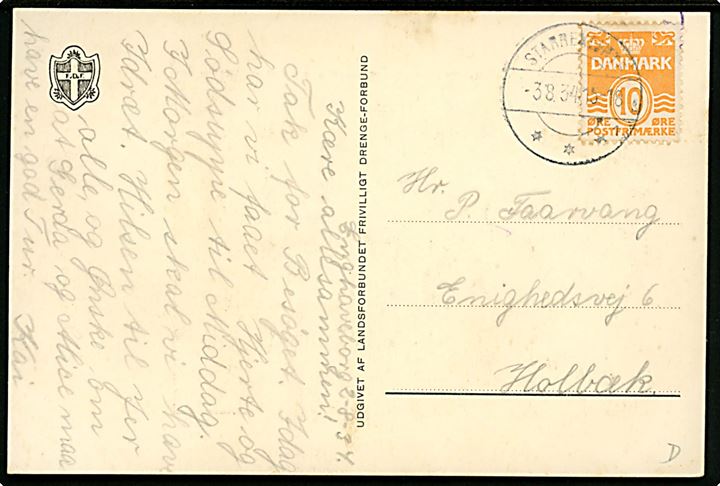 Knghaveborg 2-8-34.
Kære allesammen!
Tak for Besøget. Idag
har vi faaet Hjerte og
Sødsuppe til Middag.
I Morgen skal vi have
Idræt. Hilsen til Jer
alle, og Ønske om
at Gerda og Mise maa
have en god Tur.
Kai
F.D.F.
UDGIVET AF LANDSFORBUNDET FRIVILLIGT DRENGE-FORBUND
-3.8.34
DANMARK
10
ØRE ØRE
POSTFRIMÆRKE
Hr.
P. Faarvang
Enighedsvej 6
Holbæk.
D